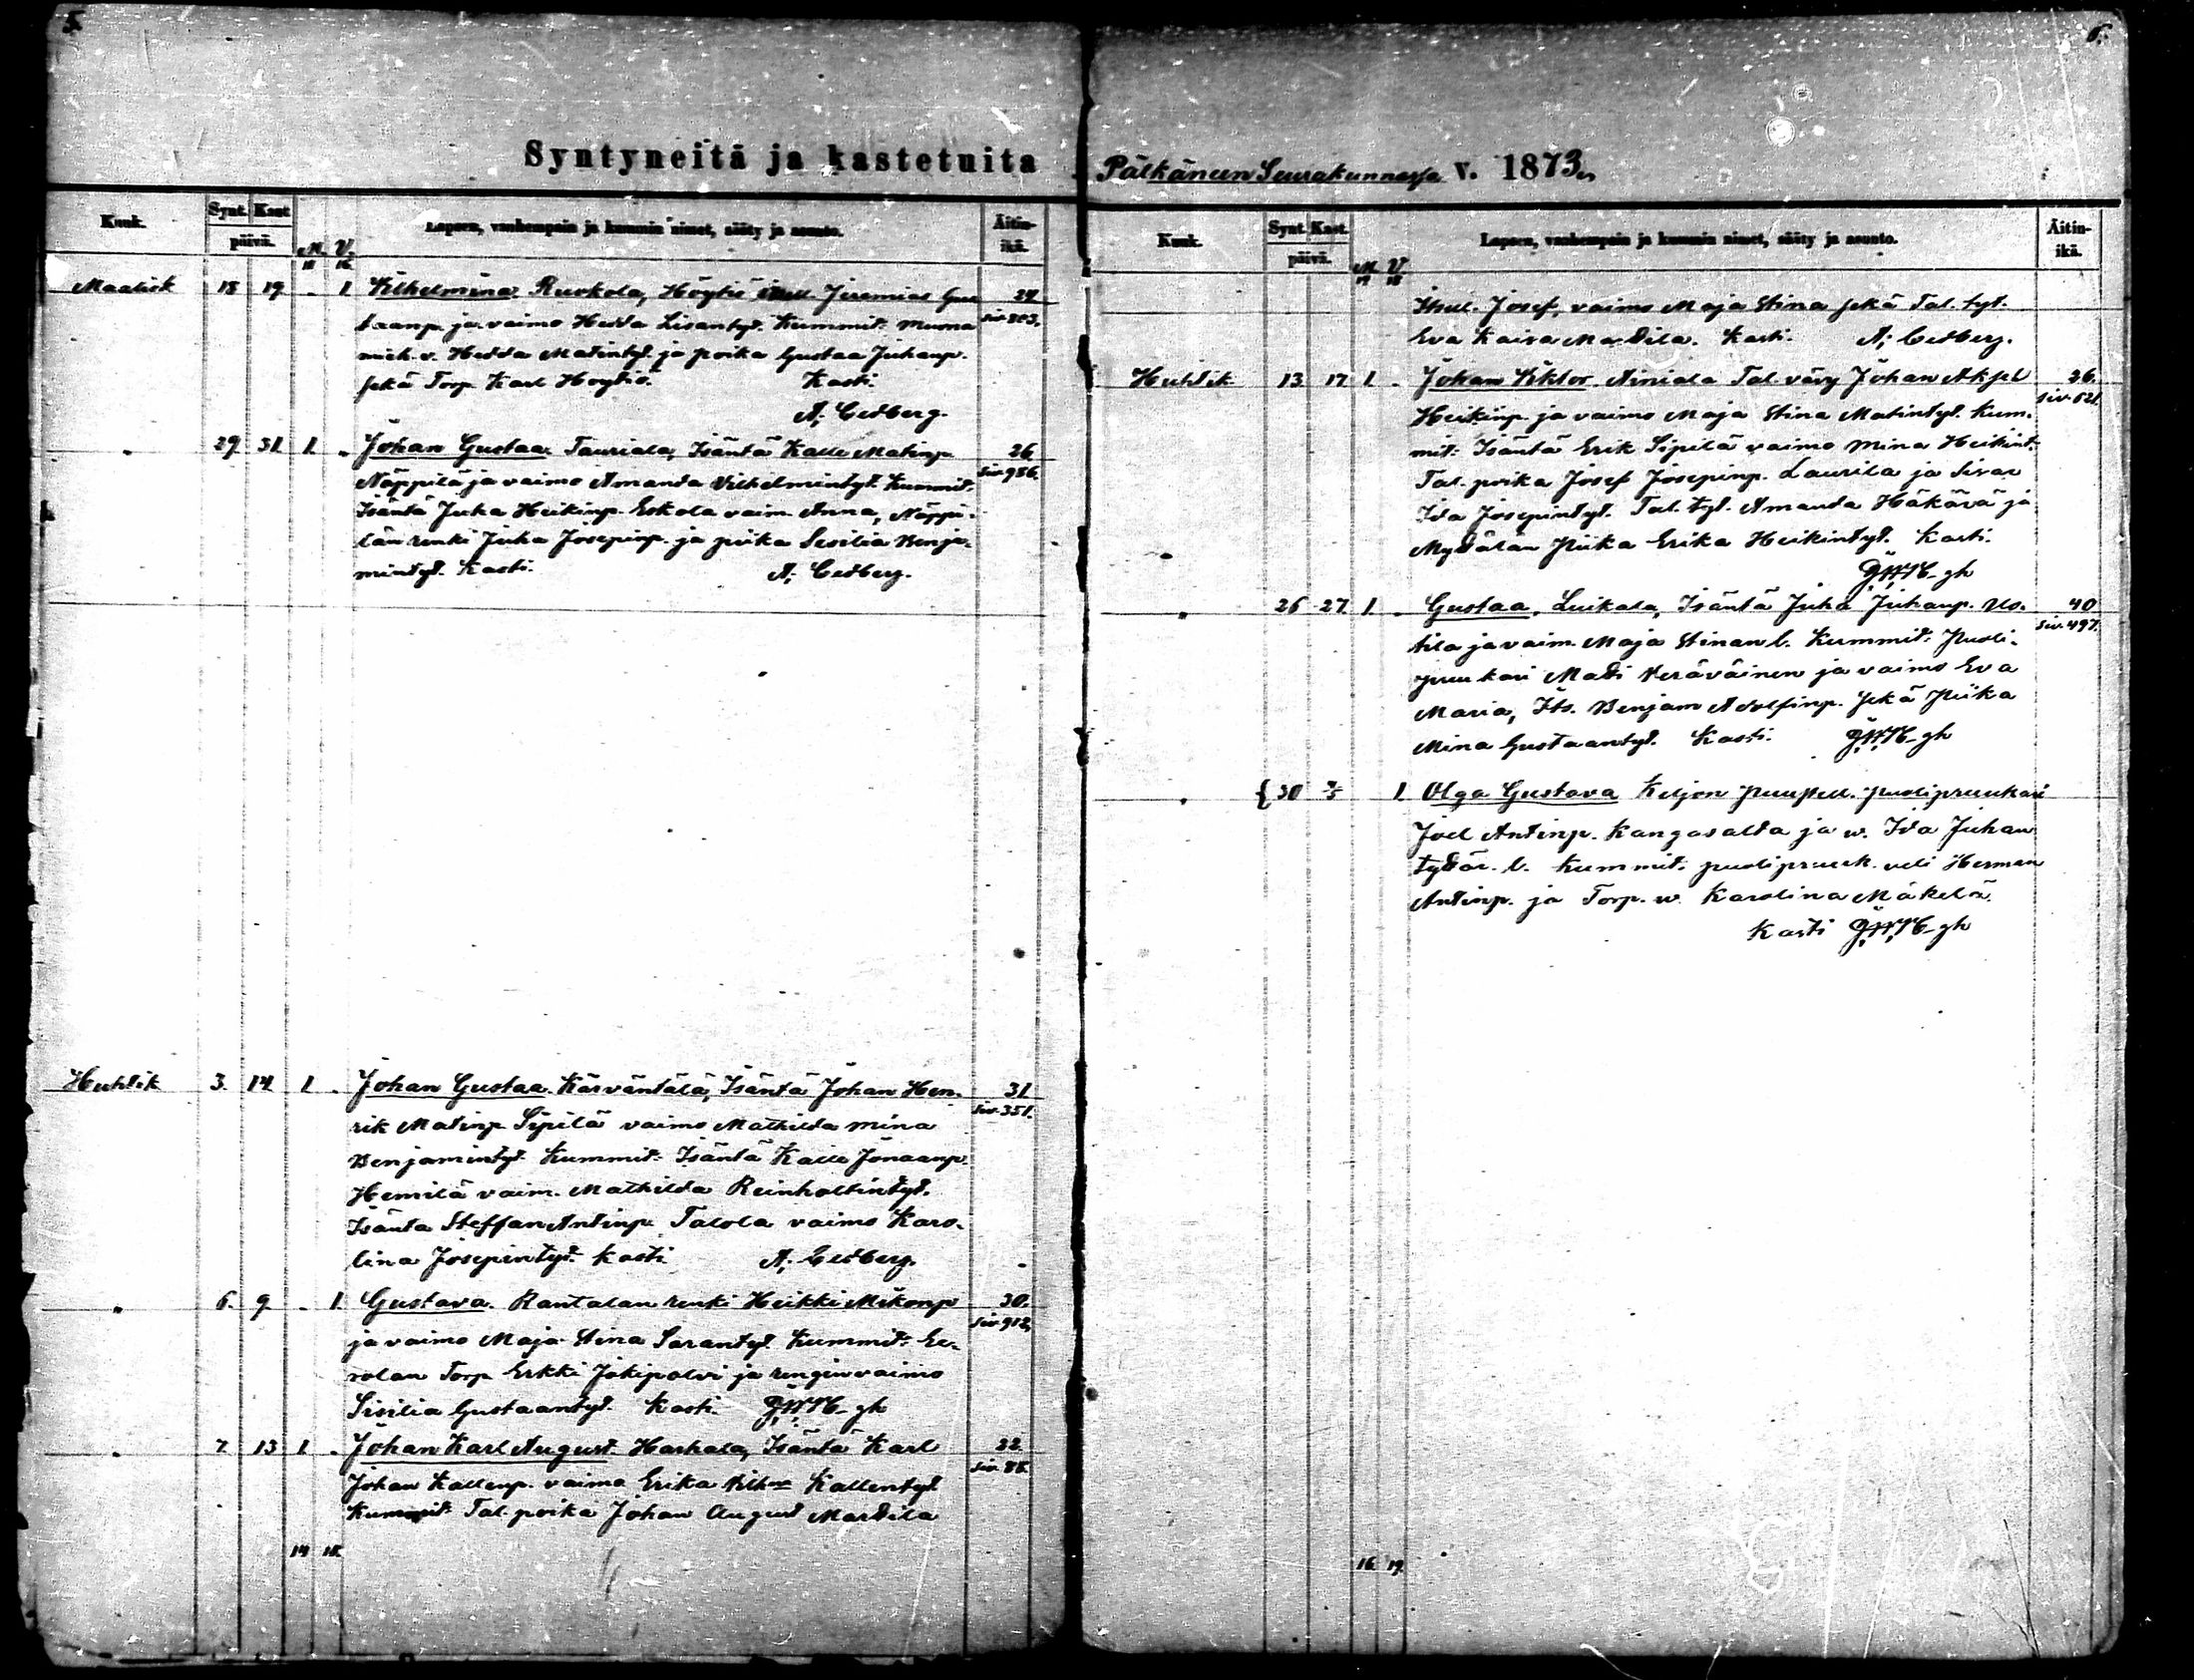 5.
Syntyneitä ja kastetuita
Kuuk. Synt. Kast. päivä. M. V. Lapsen, vanhempain ja kummin nimet, sääty ja asunto. Äitin-ikä.
Maalisk 18 19 „ 1 Vilhelmina. Ruokola, Höytiö Jeremias Gus 24
taanp. ja vaimo Hedda Lisantyt. Kummit: muona siv. 803.
mieh. v. Hedda Matintyt. ja poika Gustaa Juhanp.
sekä Torp. Karl Hoytiö. Kasti.
A; Cedberg.
„ 29 31. 1. „ Johan Gustaa. Tauriala, Isäntä Kalle Matinp. 26
Näppilä ja vaimo Amanda Vilhelmintyt. Kummit: siv. 986.
Isäntä Juha Heikinp. Eskola vaim. Anna, Näppi-
län renki Juha Josepinp. ja piika Sesilia Benja-
mintyt. Kasti. A; Cedberg.
Huhtik 3. 14. 1 „ Johan Gustaa. Kärväntälä, Isäntä Johan Hen- 31.
rik Matinp. Sipilä vaimo Mathilda mina siv. 351.
Benjamintyt. Kummit: Isäntä Kalle Jonaanp.
Hemilä vaim. Mathilda Reinholtintyt.
Isäntä Steffan Antinp. Talola vaimo Karo-
lina Josepintyt. Kasti A; Cedberg.
„ 6. 9. „ 1. Gustava. Rantalan renki Heikki Mikonp 30.
ja vaimo Maja Stina Sarantyt. Kummit: Ee- siv. 912.
rolan Torp. Erkki Jokipolvi ja renginvaimo
Sisilia Gustaantyt. Kasti.
„ 7. 13 1 „ Johan Karl August. Harhala, Isäntä Karl 22
Johan Kallenp. vaimo Erika Kallentyt siv. 88.
Kummit: Tal. poika Johan August Mattila
14 18.
6.
Pälkäneen Seurakunnassa v. 1873.
Kuuk. Synt. Kast. päivä. M. V. Lapsen, vanhempain ja kummin nimet, sääty ja asunto. Äitin-ikä.
Josef, vaimo Maja Stina sekä Tal. tyt.
Eva Kaisa Mattila. Kasti. A; Cedberg.
Huhtik. 13. 17. 1. „ Johan Viktor. Äiniälä Tal. vävy Johan Aksel 26.
Heikinp. ja vaimo Maja Stina Matintyt. Kum- siv. 521.
mit: Isäntä Erik Sipilä vaimo Mina Heikint.
Tal. poika Josef Josepinp. Laurila ja Sisar
Ida Josepintyt. Tal. tyt. Amanda Häkärä ja
Myttälän piika Erika Heikintyt. Kasti.
„ 26 27. 1. „ Gustaa, Luikala, Isäntä Juha Juhanp. Us- 40
tila ja vaim. Maja Stinan l. Kummit: Puoli- siv. 497.
pruukari Matti Veräväinen ja vaimo Eva
Maria, Its. Benjam Adolfinp. sekä Piika
Mina Gustaantyt. Kasti.
„ 30 1. Olga Gustava Keljon puolipruukari
Joel Antinp. Kangasalta ja w. Ida Juhan
tyttär. l. Kummit: puolipruuk. veli Herman
Antinp. ja Torp. w. Karolina Mäkelä.
Kasti
16. 19.